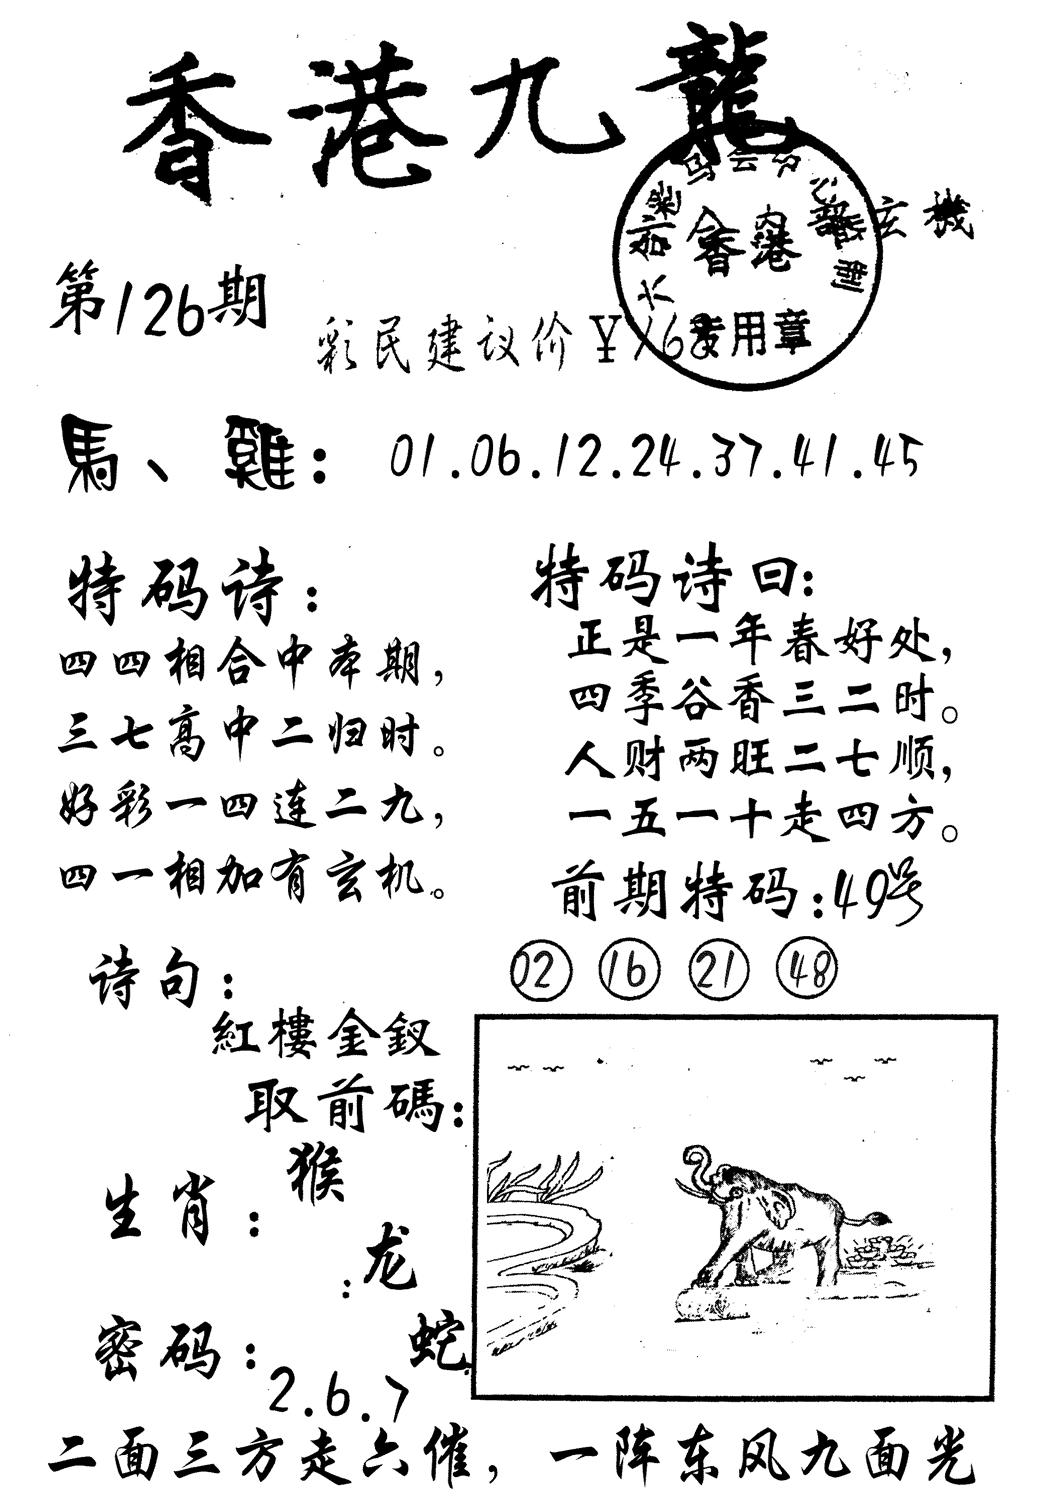 香港九龍
馬会中心
香港
内部玄機
専用章
第126期
彩民建议价￥168
馬、雞：01.06.12.24.37.41.45
特码诗：
四四相合中本期，
三七高中二归时。
好彩一四连二九，
四一相加有玄机。
特码诗曰：
正是一年春好处，
四季谷香三二时。
人财两旺二七顺，
一五一十走四方。
前期特码：49号
02 16 21 48
诗句：
紅樓金釵
取前碼：
生肖：猴
：龙
蛇
密码：2.6.7
二面三方走六催，一阵东风九面光